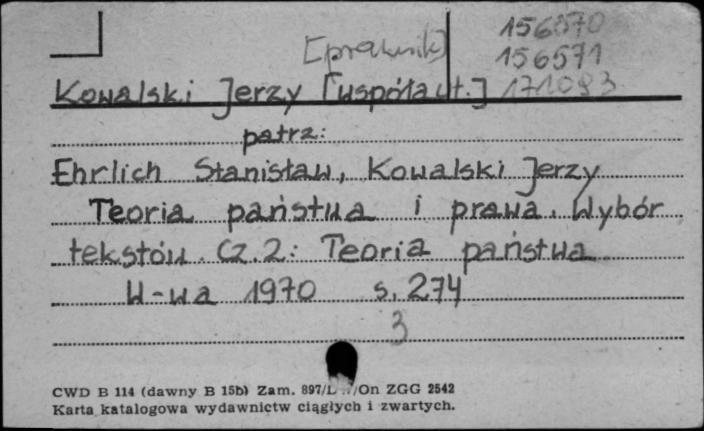 156570
[prawnik] 156571
Kowalski Jerzy [współaut.] 171093
patrz:
Ehrlich Stanisław, Kowalski Jerzy
Teoria państwa i prawa. Wybór
tekstów. Cz. 2: Teoria państwa
W-wa 1970 s. 274
3
CWD B 114 (dawny B 15b) Zam. /On ZGG 2542
Karta katalogowa wydawnictw ciągłych i zwartych.